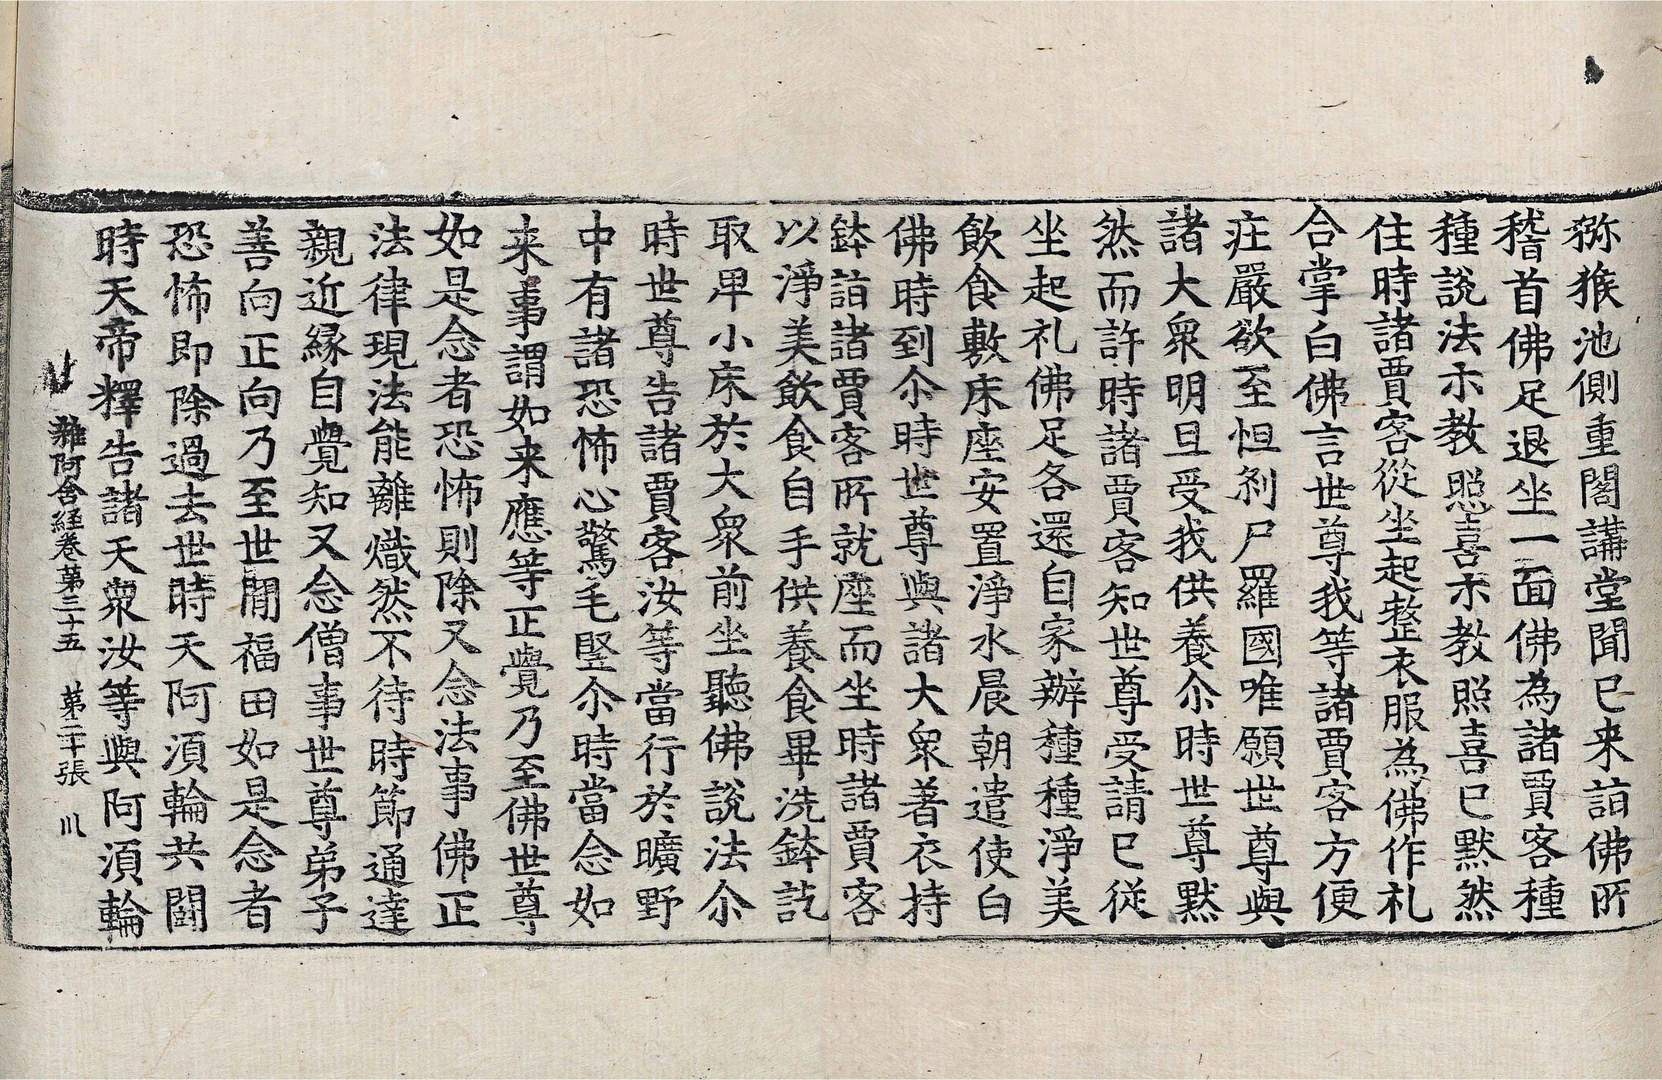 猕猴池側重閣講堂聞已来詣佛所
稽首佛足退坐一面佛為諸賈客種
種說法示教照喜示教照喜已黙然
住時諸賈客從坐起整衣服為佛作礼
合掌白佛言世尊我等諸賈客方便
疘嚴欲至怛刹尸羅國唯願世尊與
諸大衆明旦受我供養尒時世尊黙
然而許時諸賈客知世尊受請已従
坐起礼佛足各還自家辦種種淨美
飲食敷床座安置淨水晨朝遣使白
佛時到尒時世尊與諸大衆著衣持
鉢詣諸賈客所就座而坐時諸賈客
以淨美飲食自手供養食畢洗鉢訖
取卑小床於大衆前坐聽佛說法尒
時世尊告諸賈客汝等當行於曠野
中有諸恐怖心驚毛竪尒時當念如
来事謂如来應等正覺乃至佛世尊
如是念者恐怖則除又念法事佛正
法律現法能離熾然不待時節通達
親近縁自覺知又念僧事世尊弟子
善向正向乃至世閒福田如是念者
恐怖即除過去世時天阿湏輪共鬪
時天帝釋告諸天衆汝等與阿湏輪
雜阿含経卷第三十五 第二十張 川